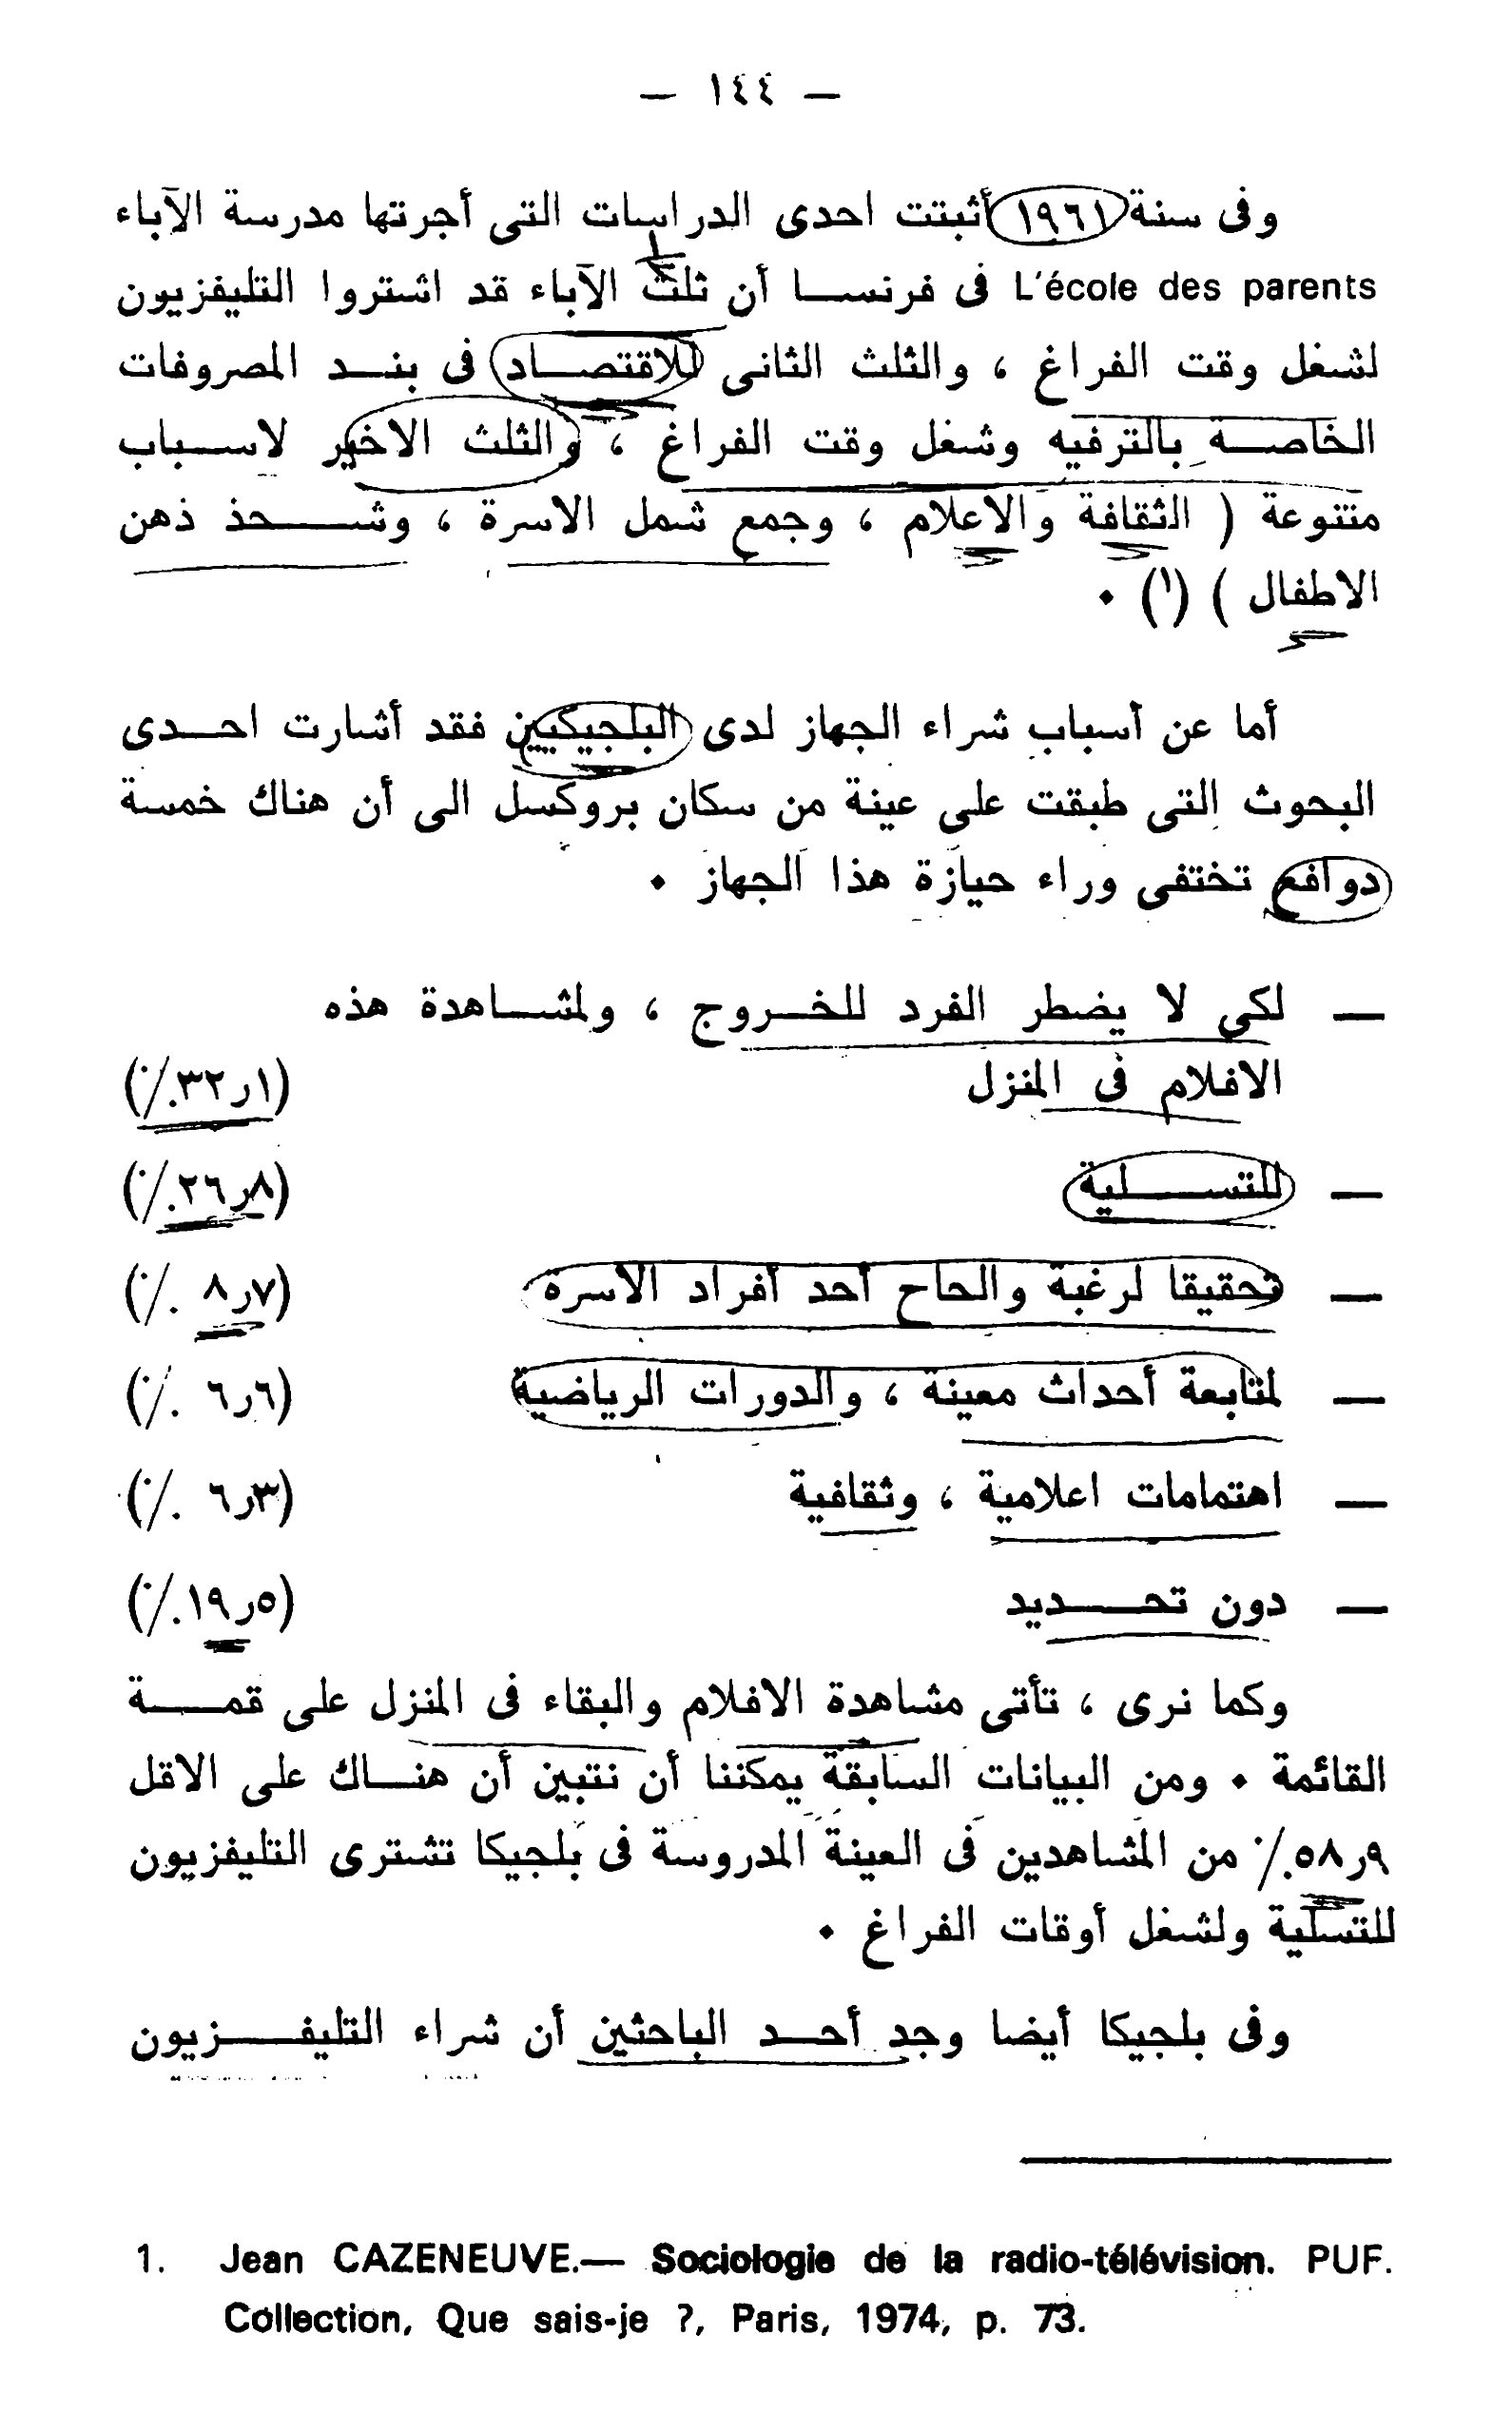 — ١٤٤ —
وفى سنة ١٩٦١ أثبتت احدى الدراسات التى أجرتها مدرسة الآباء
L'école des parents فى فرنسا أن ثلث الآباء قد اشتروا التليفزيون
لشغل وقت الفراغ ، والثلث الثانى للاقتصاد فى بند المصروفات
الخاصة بالترفيه وشغل وقت الفراغ ، والثلث الاخير لاسباب
متنوعة ( الثقافة والاعلام ، وجمع شمل الاسرة ، وشحذ ذهن
الاطفال ) (١) .
أما عن أسباب شراء الجهاز لدى البلجيكيين فقد أشارت احدى
البحوث التى طبقت على عينة من سكان بروكسل الى أن هناك خمسة
دوافع تختفى وراء حيازة هذا الجهاز .
— لكى لا يضطر الفرد للخروج ، ولمشاهدة هذه
الافلام فى المنزل (١ر٣٢٪)
— للتسلية (٨ر٢٦٪)
— تحقيقا لرغبة والحاح أحد أفراد الاسرة (٧ر٨ ٪)
— لمتابعة أحداث معينة ، والدورات الرياضية (٦ر٦ ٪)
— اهتمامات اعلامية ، وثقافية (٣ر٦ ٪)
— دون تحديد (٥ر١٩٪)
وكما نرى ، تأتى مشاهدة الافلام والبقاء فى المنزل على قمة
القائمة . ومن البيانات السابقة يمكننا أن نتبين أن هناك على الاقل
٩ر٥٨٪ من المشاهدين فى العينة المدروسة فى بلجيكا تشترى التليفزيون
للتسلية ولشغل أوقات الفراغ .
وفى بلجيكا أيضا وجد أحد الباحثين أن شراء التليفزيون
1. Jean CAZENEUVE.— Sociologie de la radio-télévision. PUF.
Collection, Que sais-je ?, Paris, 1974, p. 73.